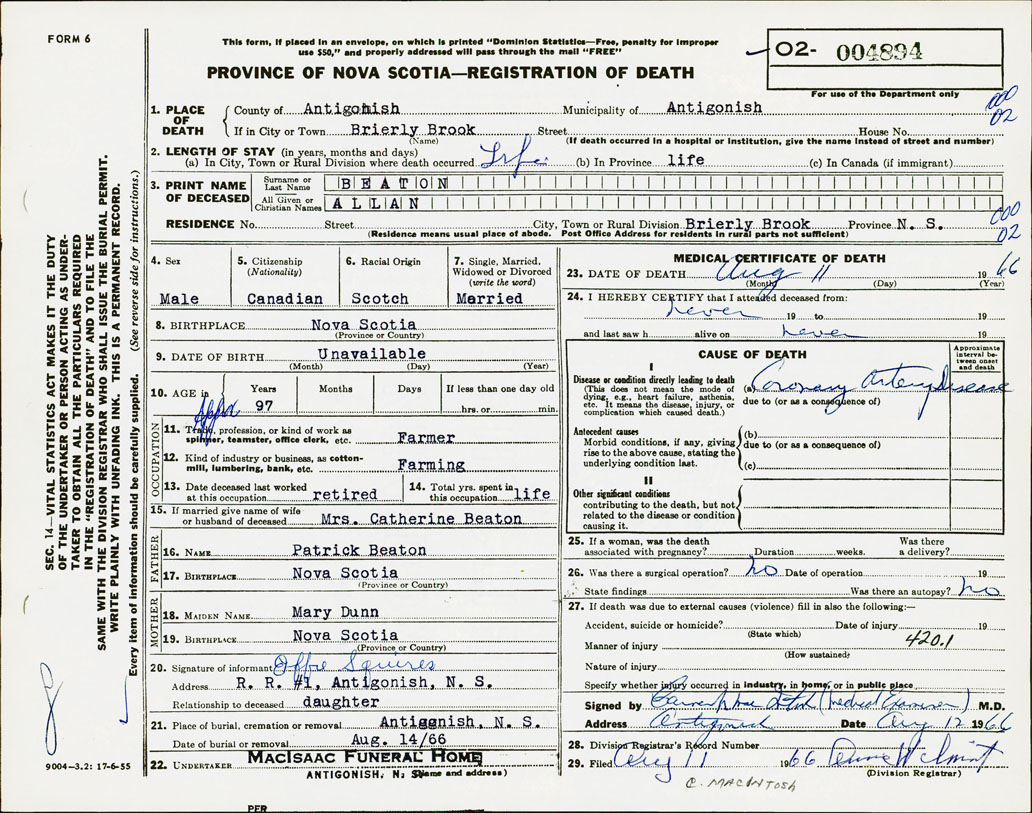 FORM 6
This form, if placed in an envelope, on which is printed "Dominion Statistics—Free, penalty for improper
use $50," and properly addressed will pass through the mail "FREE"
PROVINCE OF NOVA SCOTIA—REGISTRATION OF DEATH
02- 004894
For use of the Department only
000
02
1. PLACE OF DEATH
County of Antigonish Municipality of Antigonish
If in City or Town Brierly Brook Street House No.
(Name) (If death occurred in a hospital or institution, give the name instead of street and number)
2. LENGTH OF STAY (in years, months and days)
(a) In City, Town or Rural Division where death occurred Life (b) In Province life (c) In Canada (if immigrant)
3. PRINT NAME OF DECEASED
Surname or Last Name BEATON
All Given or Christian Names ALLAN
000
02
RESIDENCE No. Street City, Town or Rural Division Brierly Brook Province N. S.
(Residence means usual place of abode. Post Office Address for residents in rural parts not sufficient)
4. Sex
Male
5. Citizenship
(Nationality)
Canadian
6. Racial Origin
Scotch
7. Single, Married,
Widowed or Divorced
(write the word)
Married
8. BIRTHPLACE Nova Scotia
(Province or Country)
9. DATE OF BIRTH Unavailable
(Month) (Day) (Year)
10. AGE in Years Months Days If less than one day old
97 hrs. or min.
OCCUPATION
11. Trade, profession, or kind of work as
spinner, teamster, office clerk, etc. Farmer
12. Kind of industry or business, as cotton-
mill, lumbering, bank, etc. Farming
13. Date deceased last worked
at this occupation retired
14. Total yrs. spent in
this occupation life
15. If married give name of wife
or husband of deceased Mrs. Catherine Beaton
FATHER
16. NAME Patrick Beaton
17. BIRTHPLACE Nova Scotia
(Province or Country)
MOTHER
18. MAIDEN NAME Mary Dunn
19. BIRTHPLACE Nova Scotia
(Province or Country)
20. Signature of informant Effie Squires
Address R. R. #1, Antigonish, N. S.
Relationship to deceased daughter
21. Place of burial, cremation or removal Antigonish, N. S.
Date of burial or removal Aug. 14/66
22. UNDERTAKER MACISAAC FUNERAL HOME
ANTIGONISH, N. S. (Name and address)
MEDICAL CERTIFICATE OF DEATH
23. DATE OF DEATH Aug 11 1966
(Month) (Day) (Year)
24. I HEREBY CERTIFY that I attended deceased from:
never 19 to 19
and last saw h alive on never 19
CAUSE OF DEATH
Approximate
interval be-
tween onset
and death
I
Disease or condition directly leading to death
(This does not mean the mode of
dying, e.g., heart failure, asthenia,
etc. It means the disease, injury, or
complication which caused death.)
(a) Coronary Artery Disease
due to (or as a consequence of)
Antecedent causes
Morbid conditions, if any, giving
rise to the above cause, stating the
underlying condition last.
(b)
due to (or as a consequence of)
(c)
II
Other significant conditions
contributing to the death, but not
related to the disease or condition
causing it.
25. If a woman, was the death
associated with pregnancy? Duration weeks. Was there
a delivery?
26. Was there a surgical operation? no Date of operation 19
State findings Was there an autopsy? no
27. If death was due to external causes (violence) fill in also the following:—
Accident, suicide or homicide? Date of injury 19
(State which)
Manner of injury 420.1
(How sustained)
Nature of injury
Specify whether injury occurred in industry, in home, or in public place
Signed by (Medical Examiner) M.D.
Address Antigonish Date Aug 12 1966
28. Division Registrar's Record Number
29. Filed Aug 11 1966
(Division Registrar)
C. MACINTOSH
SEC. 14—VITAL STATISTICS ACT MAKES IT THE DUTY
OF THE UNDERTAKER OR PERSON ACTING AS UNDER-
TAKER TO OBTAIN ALL THE PARTICULARS REQUIRED
IN THE "REGISTRATION OF DEATH" AND TO FILE THE
SAME WITH THE DIVISION REGISTRAR WHO SHALL ISSUE THE BURIAL PERMIT.
WRITE PLAINLY WITH UNFADING INK. THIS IS A PERMANENT RECORD.
Every item of information should be carefully supplied. (See reverse side for instructions.)
9004-3.2: 17-6-55
PER